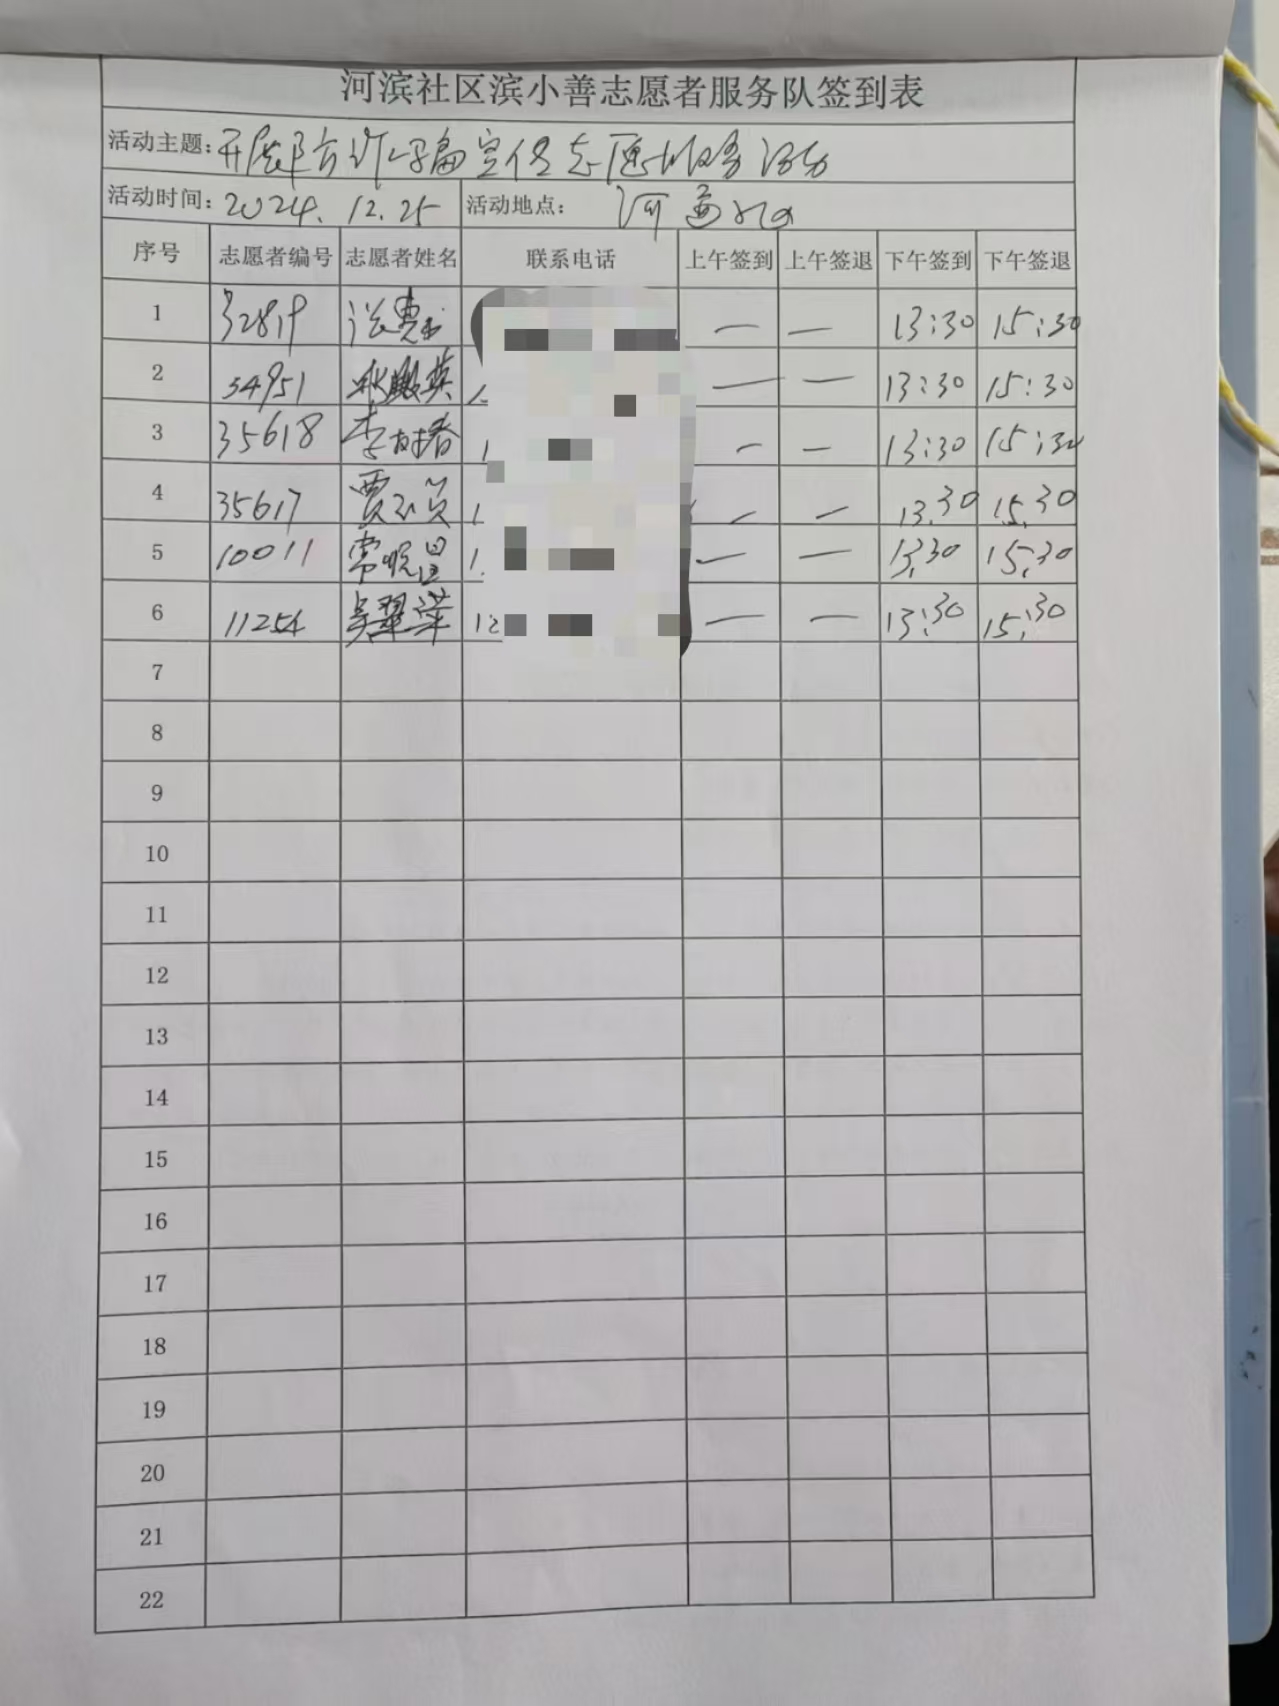 河滨社区滨小善志愿者服务队签到表
活动主题: 开展防诈骗宣传志愿服务活动
活动时间: 2024. 12. 25 活动地点: 河
序号 志愿者编号 志愿者姓名 联系电话 上午签到 上午签退 下午签到 下午签退
1 32819 — — 13:30 15:30
2 34951 英 — — 13:30 15:30
3 35618 李树春 — — 13:30 15:30
4 35617 贾 — — 13.30 15.30
5 10011 常 — — 13:30 15:30
6 11254 吴翠萍 — — 13:30 15:30
7
8
9
10
11
12
13
14
15
16
17
18
19
20
21
22